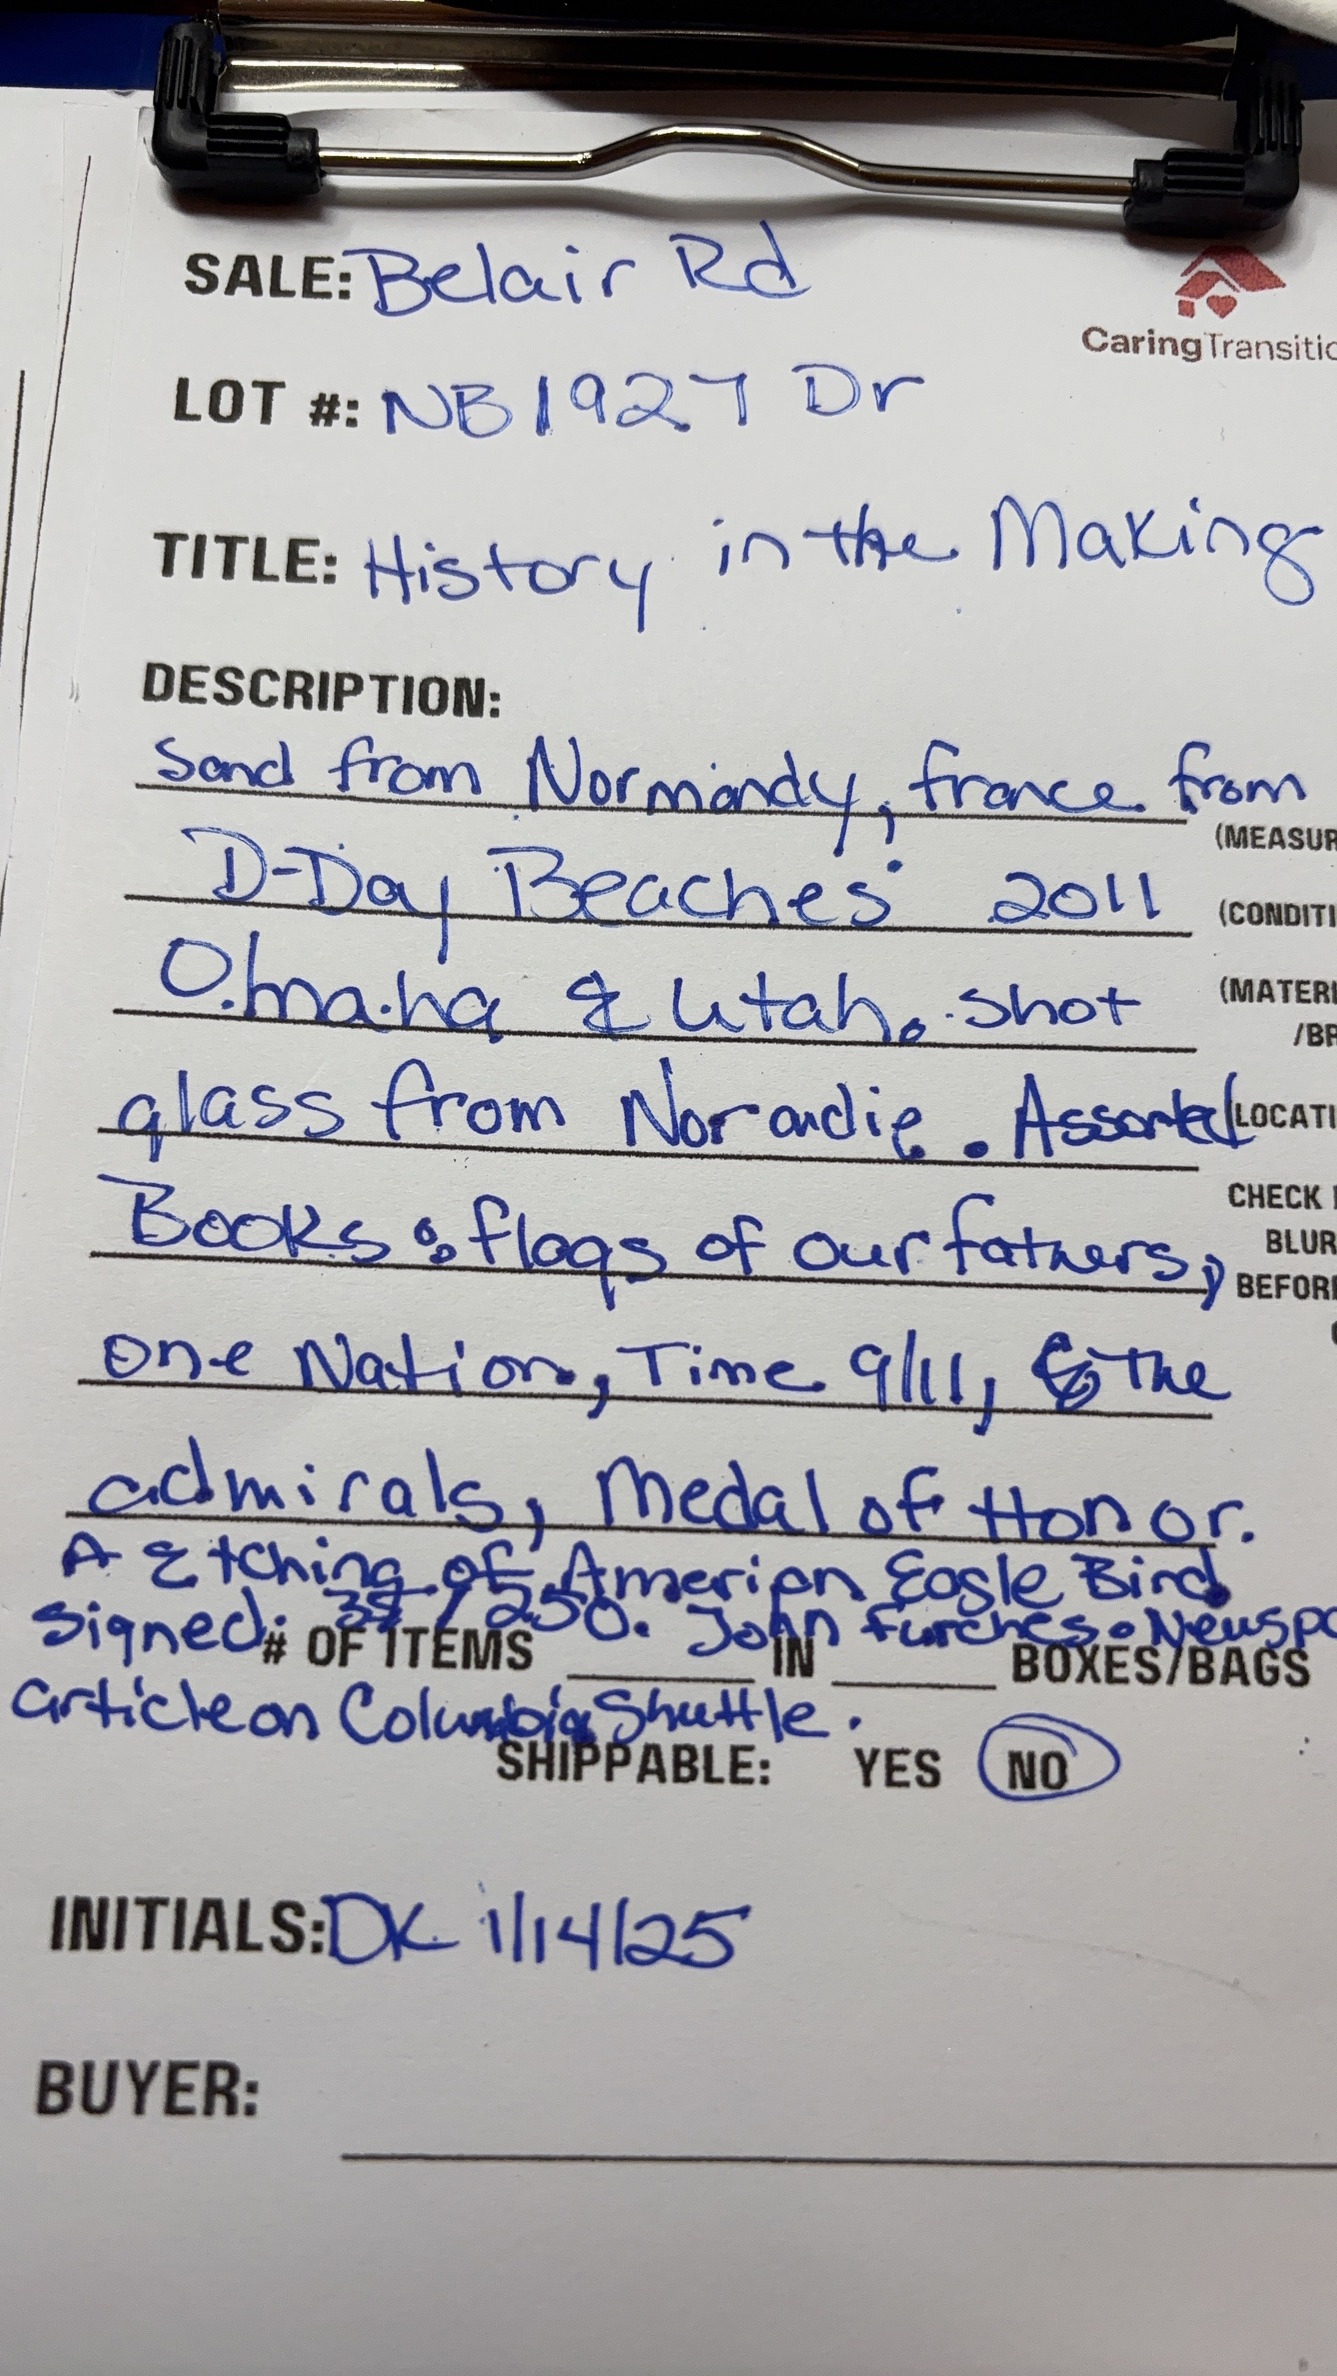 SALE: Belair Rd
CaringTransitio
LOT #: NB1927 Dr
TITLE: History in the Making
DESCRIPTION:
Sand from Normandy, france from
(MEASUR
D-Day Beaches 2011
(CONDITI
Omaha & Utah. shot
(MATERI
/BR
glass from Norandie. Assorted
LOCATI
CHECK
Books: flags of our fathers,
BLUR
BEFOR
one Nation, Time 9/11, & The
admirals, Medal of Honor.
A Etching of Amerian Eagle Bird
signed. /250. John Furches. Newspa
# OF ITEMS IN BOXES/BAGS
article on Columbia Shuttle.
SHIPPABLE: YES NO
INITIALS: DK 1/14/25
BUYER: